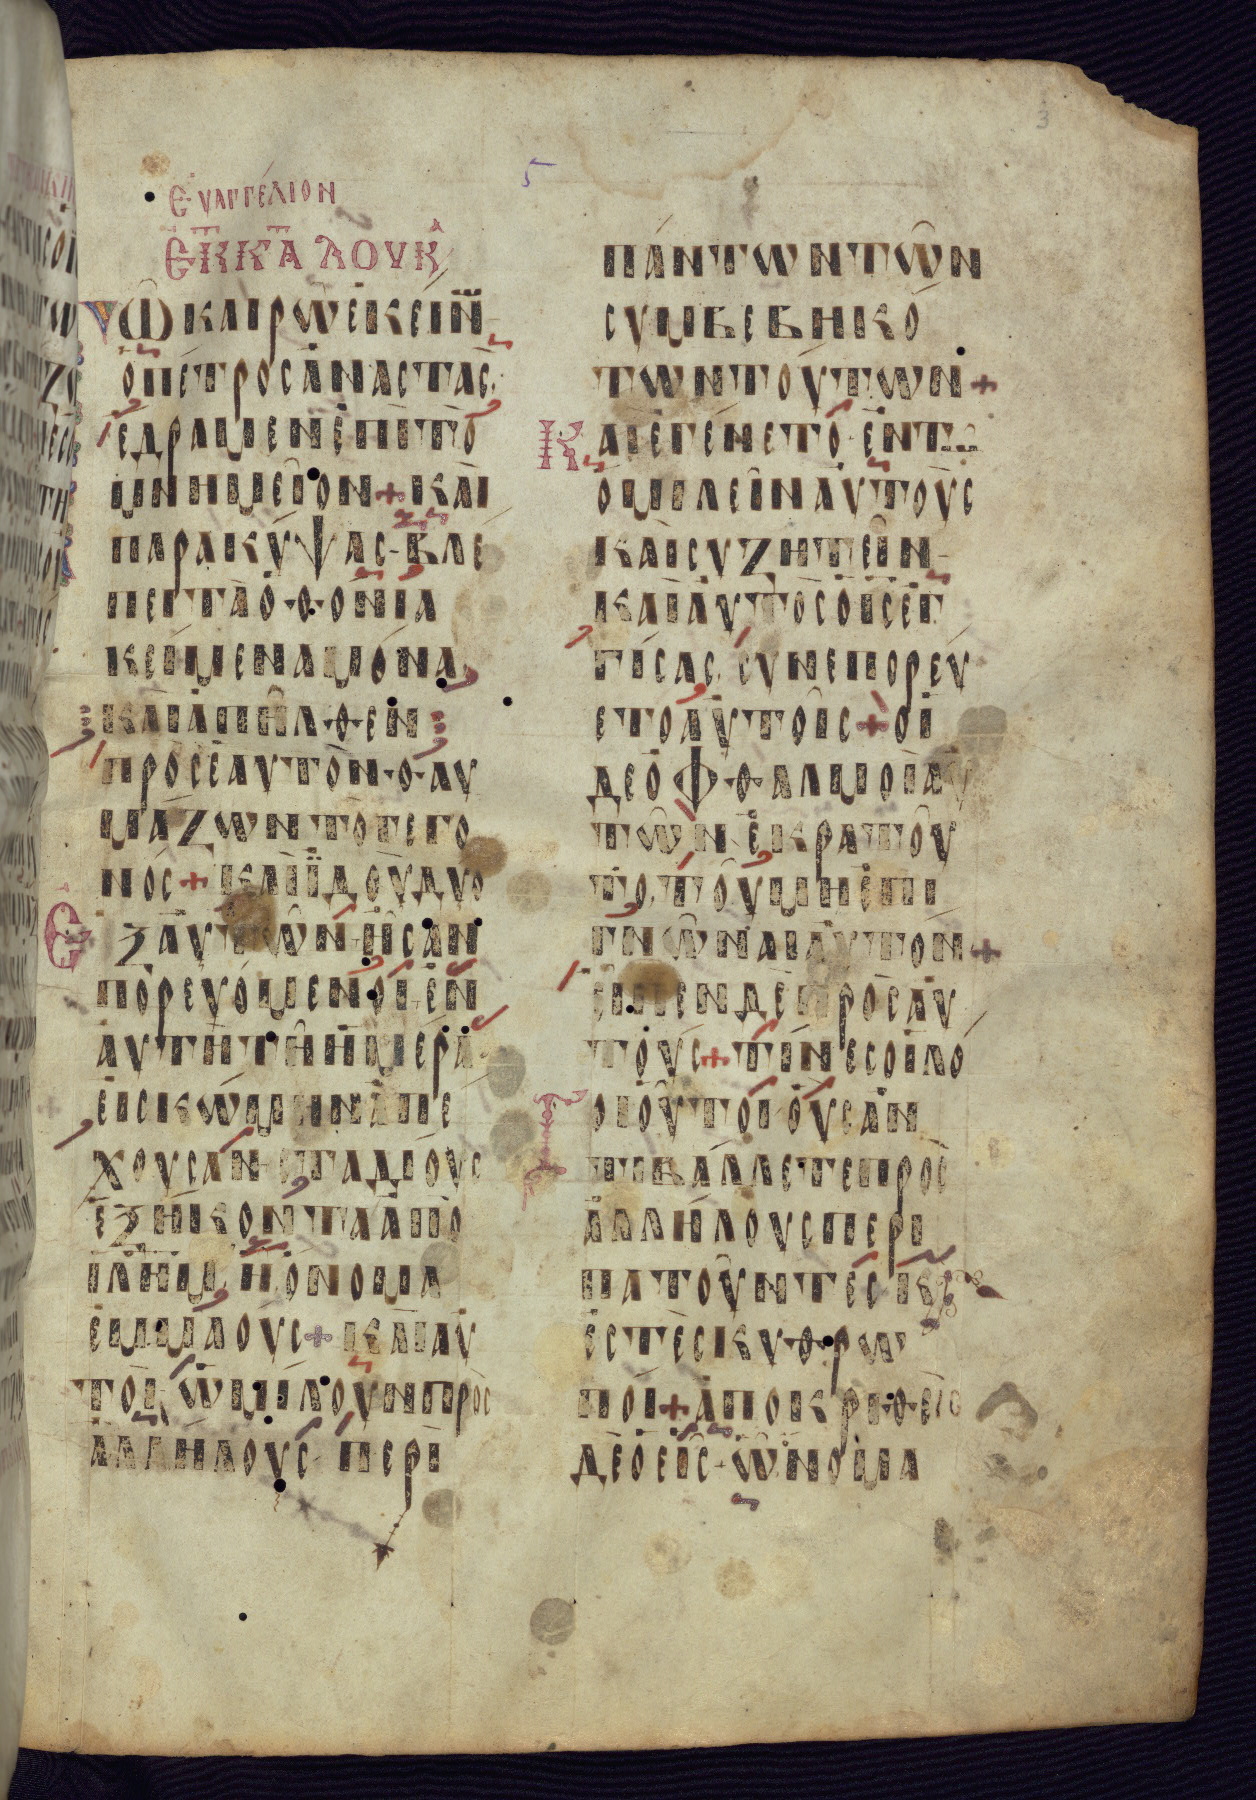 3
5
ΕΥΑΓΓΕΛΙΟΝ
ΕΚ ΚΑΤΑ ΛΟΥΚΑ
ΤΩ ΚΑΙΡΩ ΕΚΕΙΝ
Ὁ ΠΕΤΡΟΣ ΑΝΑΣΤΑΣ
ΕΔΡΑΜΕΝ ΕΠΙ ΤΟ
ΜΝΗΜΕΙΟΝ + ΚΑΙ
ΠΑΡΑΚΥΨΑΣ ΒΛΕ
ΠΕΙ ΤΑ ΟΘΟΝΙΑ
ΚΕΙΜΕΝΑ ΜΟΝΑ
ΚΑΙ ΑΠΗΛΘΕΝ
ΠΡΟΣ ΕΑΥΤΟΝ ΘΑΥ
ΜΑΖΩΝ ΤΟ ΓΕΓΟ
ΝΟΣ + ΚΑΙ ΙΔΟΥ ΔΥΟ
ΕΞ ΑΥΤΩΝ ΗΣΑΝ
ΠΟΡΕΥΟΜΕΝΟΙ ΕΝ
ΑΥΤΗ ΤΗ ΗΜΕΡΑ
ΕΙΣ ΚΩΜΗΝ ΑΠΕ
ΧΟΥΣΑΝ ΣΤΑΔΙΟΥΣ
ΕΞΗΚΟΝΤΑ ΑΠΟ
ΙΛΗΜ Η ΟΝΟΜΑ
ΕΜΜΑΟΥΣ + ΚΑΙ ΑΥ
ΤΟΙ ΩΜΙΛΟΥΝ ΠΡΟΣ
ΑΛΛΗΛΟΥΣ ΠΕΡΙ
ΠΑΝΤΩΝ ΤΩΝ
ΣΥΜΒΕΒΗΚΟ
ΤΩΝ ΤΟΥΤΩΝ +
ΚΑΙ ΕΓΕΝΕΤΟ ΕΝ ΤΩ
ΟΜΙΛΕΙΝ ΑΥΤΟΥΣ
ΚΑΙ ΣΥΖΗΤΕΙΝ
ΚΑΙ ΑΥΤΟΣ Ο ΙΣ ΕΓ
ΓΙΣΑΣ ΣΥΝΕΠΟΡΕΥ
ΕΤΟ ΑΥΤΟΙΣ + ΟΙ
ΔΕ ΟΦΘΑΛΜΟΙ ΑΥ
ΤΩΝ ΕΚΡΑΤΟΥ
ΤΟ ΤΟΥ ΜΗ ΕΠΙ
ΓΝΩΝΑΙ ΑΥΤΟΝ +
ΕΙΠΕΝ ΔΕ ΠΡΟΣ ΑΥ
ΤΟΥΣ + ΤΙΝΕΣ ΟΙ ΛΟ
ΓΟΙ ΟΥΤΟΙ ΟΥΣ ΑΝ
ΤΙΒΑΛΛΕΤΕ ΠΡΟΣ
ΑΛΛΗΛΟΥΣ ΠΕΡΙ
ΠΑΤΟΥΝΤΕΣ Κ
ΕΣΤΕ ΣΚΥΘΡΩ
ΠΟΙ + ΑΠΟΚΡΙΘΕΙΣ
ΔΕ Ο ΕΙΣ Ω ΟΝΟΜΑ